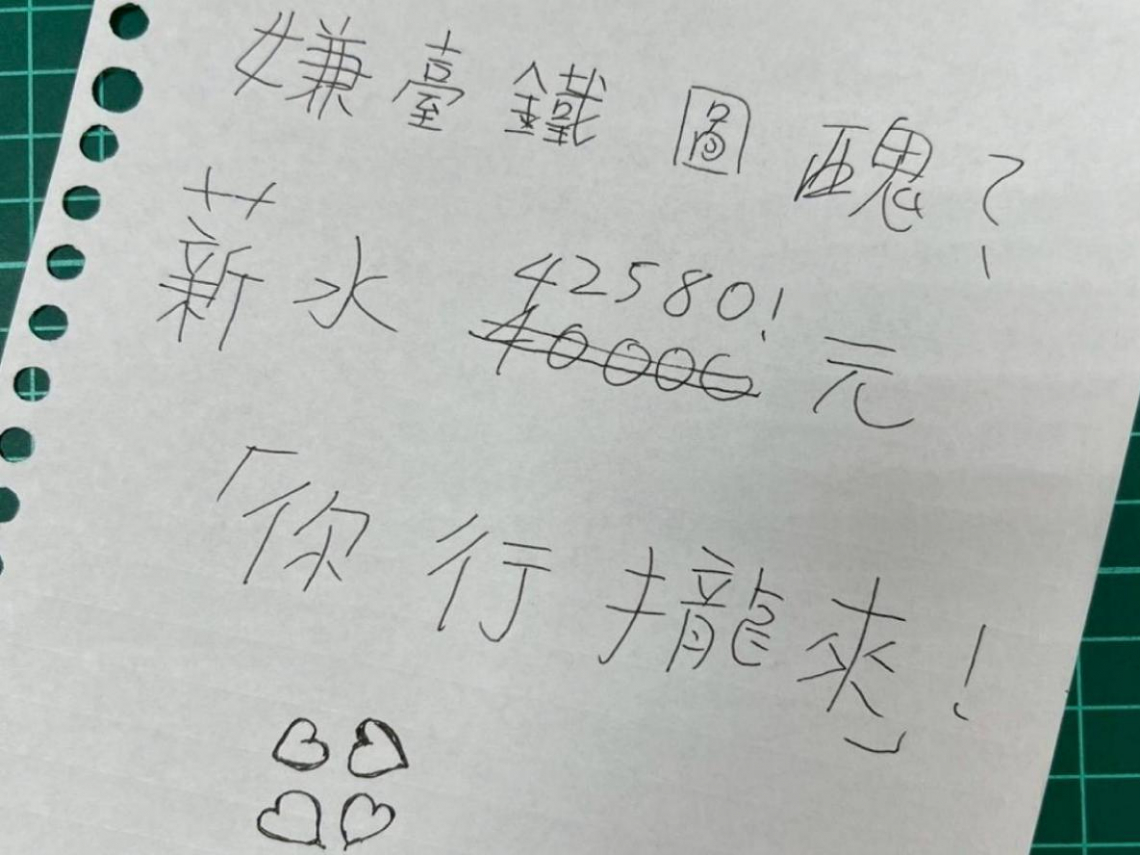 嫌臺鐵圖醜?
薪水 42580!
40000 元
「你行攏來」!